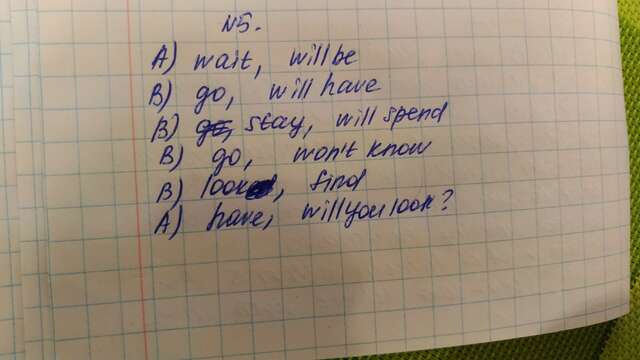 №5.
A) wait, will be
B) go, will have
B) go, stay, will spend
B) go, won't know
B) look, find
A) have, will you look?